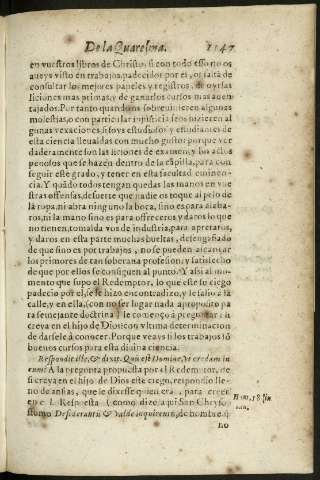 De la Quaresma. 1147
en vuestros libros de Christo, si con todo esso no os
aueys visto en trabajos padecidos por el, os falta de
consultar los mejores papeles y registros, de oyr las
liciones mas primas, y de ganar los cursos mas auen-
tajados. Por tanto quando os sobreuinieren algunas
molestias, o con particular injusticia se os hizieren al
gunas vexaciones, si soys estudiosos y estudiantes de
esta ciencia lleuadas con mucho gusto: porque ver
daderamente son las liciones de examen, y los actos
pedidos que se hazen dentro de la capilla, para con
seguir este grado, y tener en esta facultad eminen-
cia. Y quãdo todos tengan quedas las manos en vue
stras offensas, de suerte que nadie os toque al pelo de
la ropa, ni abra ninguno la boca, sino es para alaba-
ros, ni la mano sino es para offreceros y daros lo que
no tienen, tomalda vos de industria, para apretaros,
y daros en esta parte muchas bueltas, desengañado
de que sino es por trabajos, no se pueden alcançar
los primores de tan soberana profession: y satisfecho
de que por ellos se consiguen al punto. Y assi al mo-
mento que supo el Redemptor, lo que este su ciego
padecio por el, se le hizo encontradizo, y le salio a la
calle, y en ella, (con no ser lugar nada aproposito pa
ra semejante doctrina) le començo a preguntar si
creya en el hijo de Dios: con vltima determinacion
de darsele à conocer. Porque veays si los trabajos sõ
buenos cursos para esta diuina ciencia.
Respondit ille, & dixit. Quis est Domine, vt credam in
eum? A la pregunta propuesta por el Redemptor, de
si creya en el hijo de Dios este ciego, respondio lle-
no de ansias, que le dixesse quien era, para creer
en el. Respuesta (como dize aqui San Chryso-
stomo Desiderantis & valde inquirentis, de hombre q̃
no